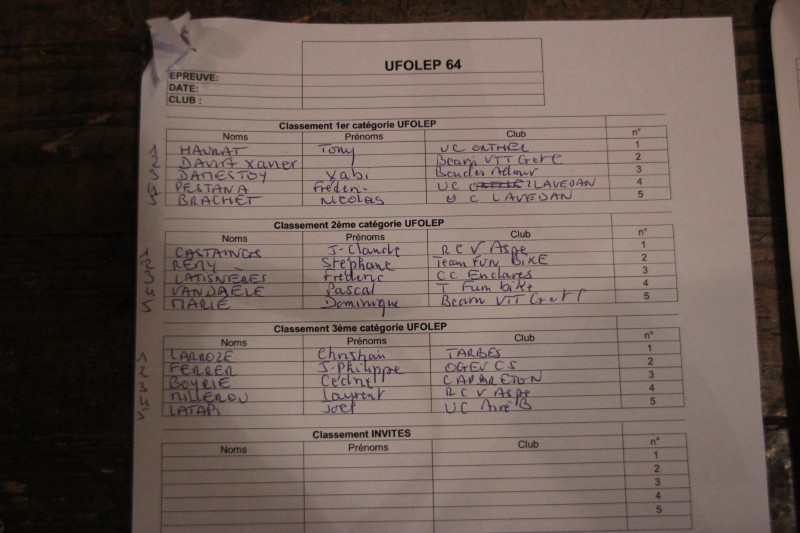 UFOLEP 64
EPREUVE:
DATE:
CLUB :
Classement 1er catégorie UFOLEP
Noms Prénoms Club n°
1 HAURAT Tony UC 1
2 DAVID Xavier Bearn VTT 2
3 DAMESTOY Yabi Adour 3
4 PESTANA Fréderi. UC LAVEDAN 4
5 BRACHET Nicolas U C LAVEDAN 5
Classement 2ème catégorie UFOLEP
Noms Prénoms Club n°
1 CASTAINGS J-Claude R C V Aspe 1
2 REMY Stéphane Team FUN BIKE 2
3 LATISNERES Frédéric CC 3
4 VANDAELE Pascal T Fum bike 4
5 MARIE Dominique Bearn VTT 5
Classement 3ème catégorie UFOLEP
Noms Prénoms Club n°
1 LARROZE Christian TARBES 1
2 FERRER J-Philippe OGEU CS 2
3 BOYRIE Cédric CAPBRETON 3
4 MILLEROU Laurent R C V Aspe 4
5 LATAPI Joel UC Aire 5
Classement INVITES
Noms Prénoms Club n°
1
2
3
4
5